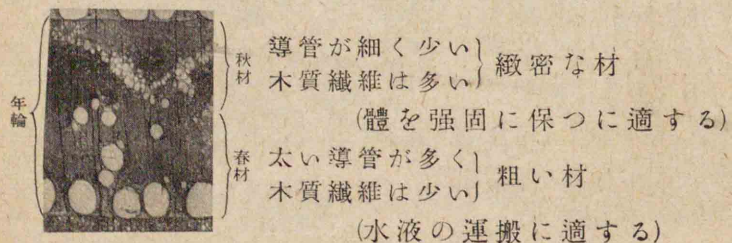 年輪
秋材
導管が細く少い
木質纖維は多い
緻密な材
(體を强固に保つに適する)
春材
太い導管が多く
木質纖維は少い
粗い材
(水液の運搬に適する)